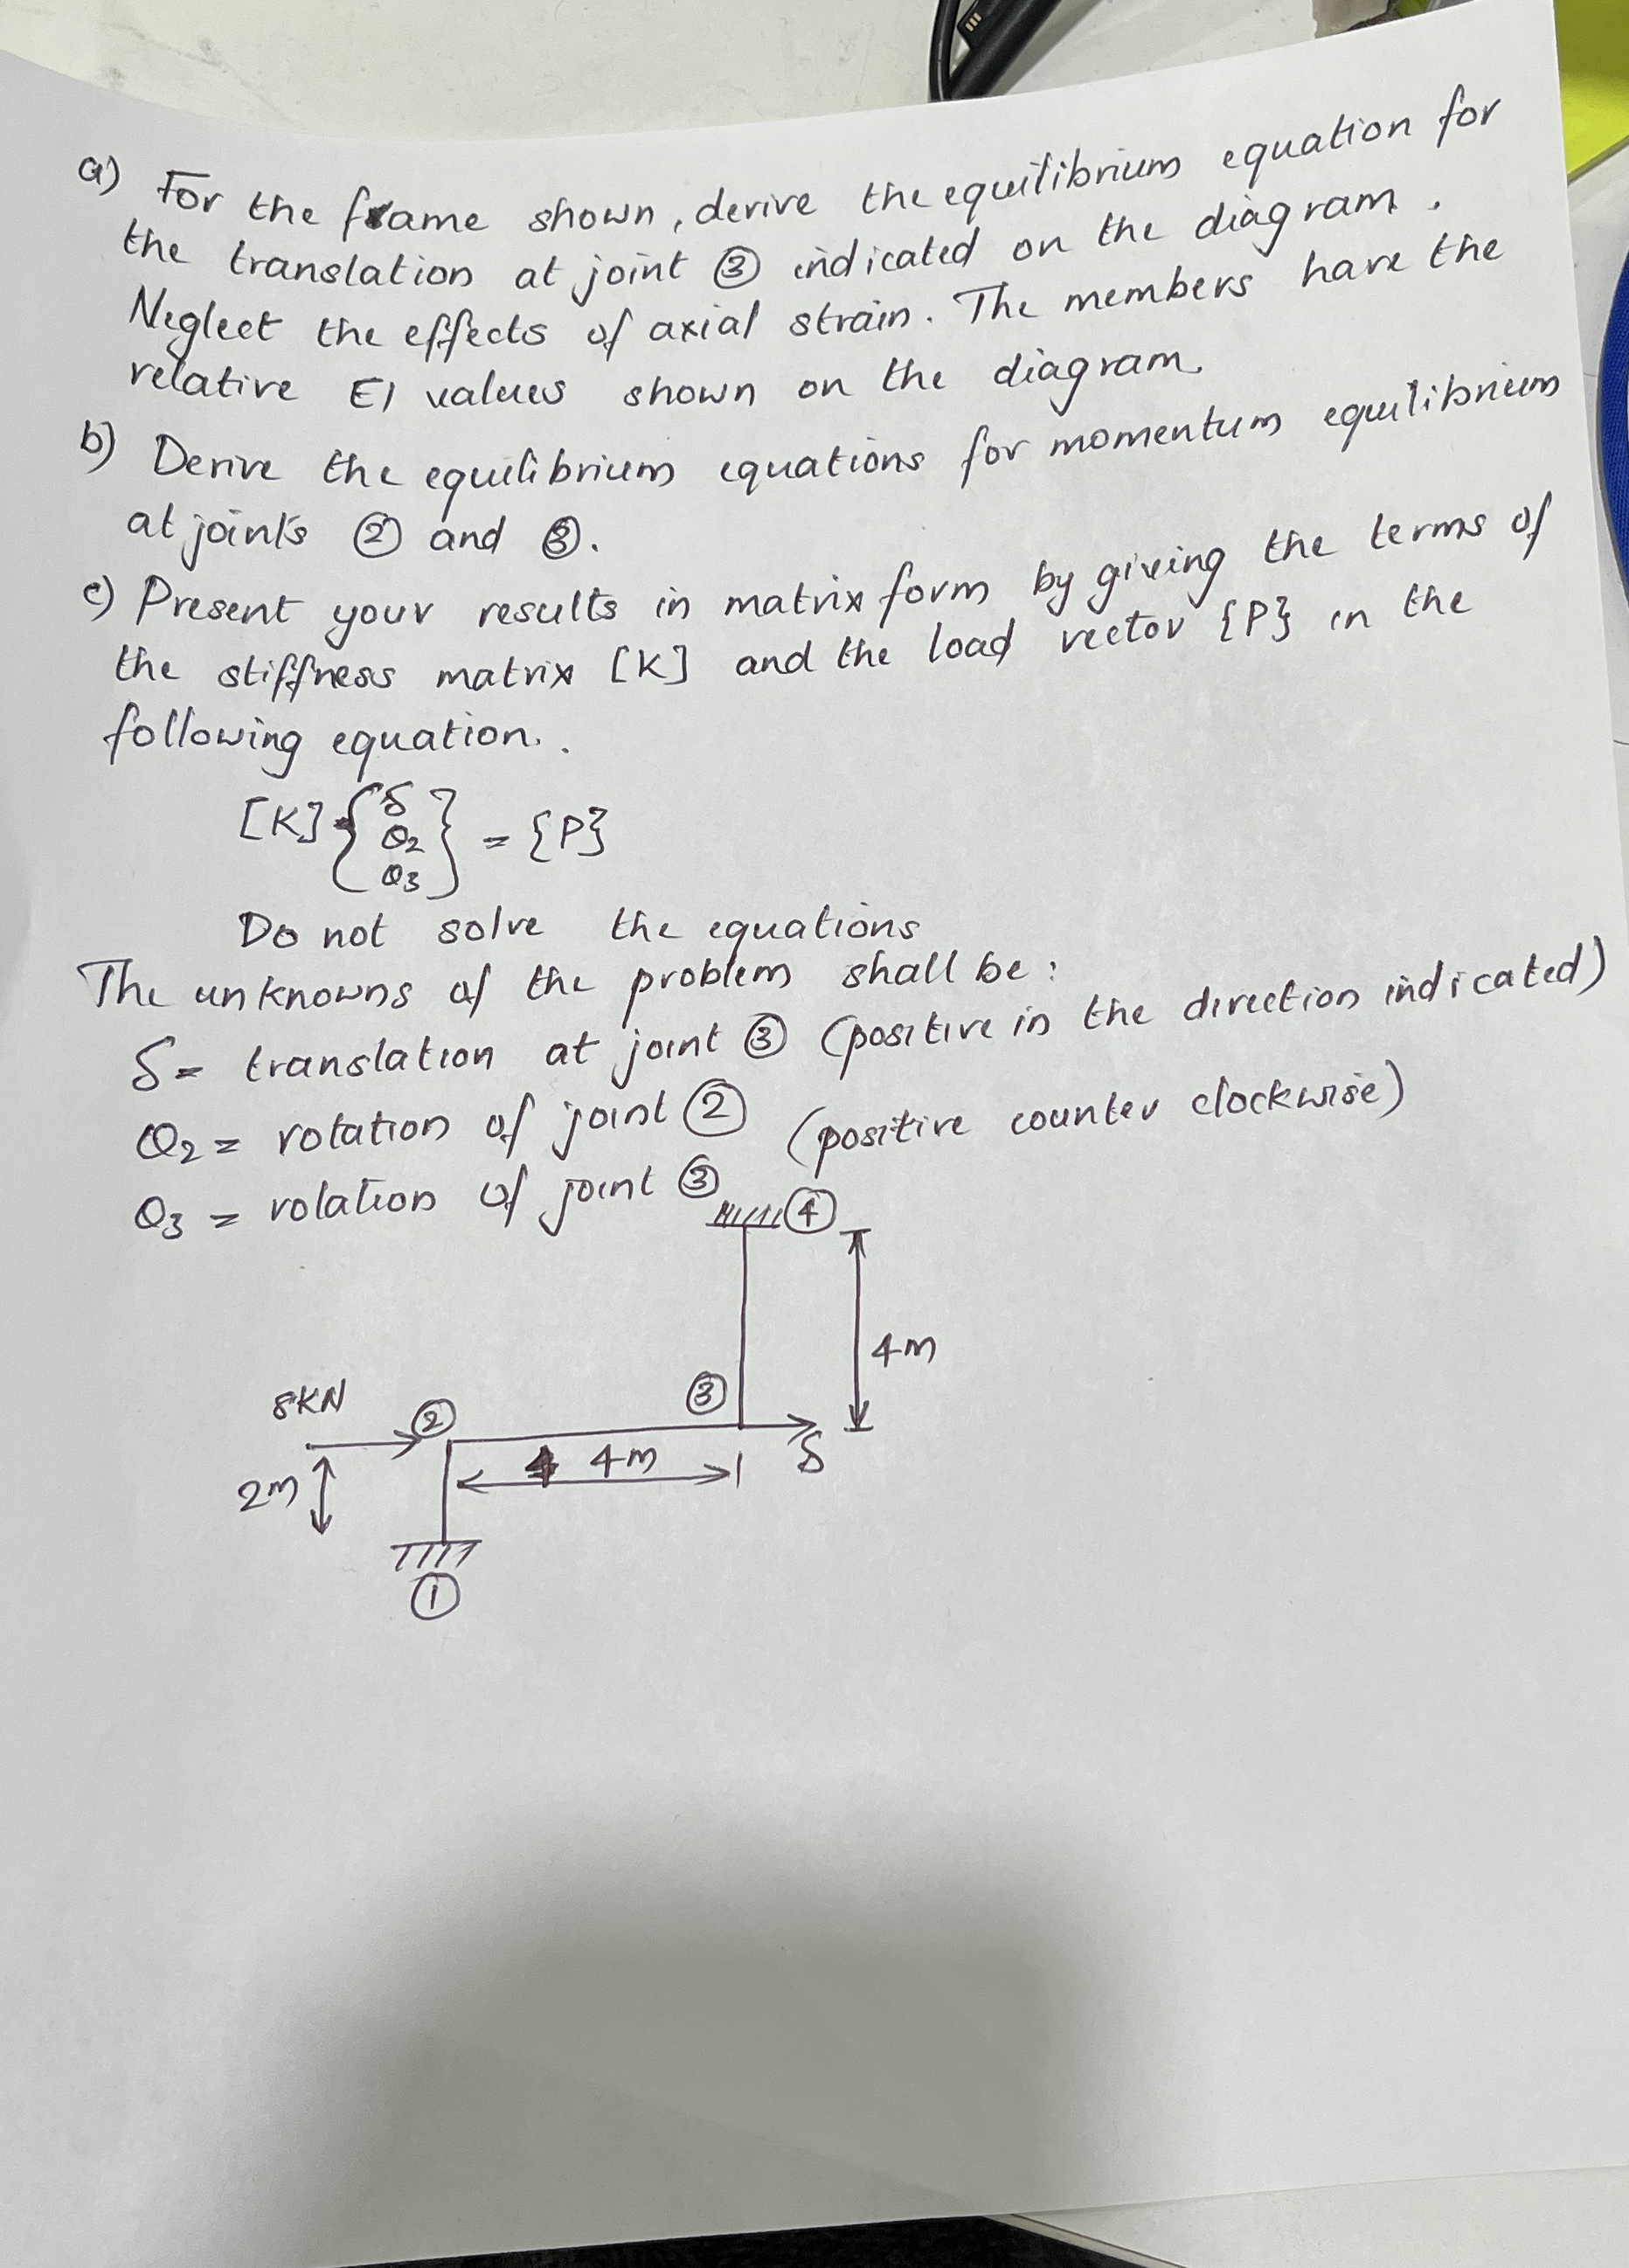 a) For the frame shown, derive the equilibrium equation for
the translation at joint ③ indicated on the diagram.
Neglect the effects of axial strain. The members have the
relative EI values shown on the diagram.
b) Derive the equilibrium equations for momentum equilibrium
at joints ② and ③.
c) Present your results in matrix form by giving the terms of
the stiffness matrix [K] and the load vector {P} in the
following equation.
[K] { δ
θ2
θ3 } = {P}
Do not solve the equations
The unknowns of the problem shall be:
δ = translation at joint ③ (positive in the direction indicated)
θ2 = rotation of joint ② (positive counter clockwise)
θ3 = rotation of joint ③
④
4m
8KN
②
③
2m
4m
δ
①